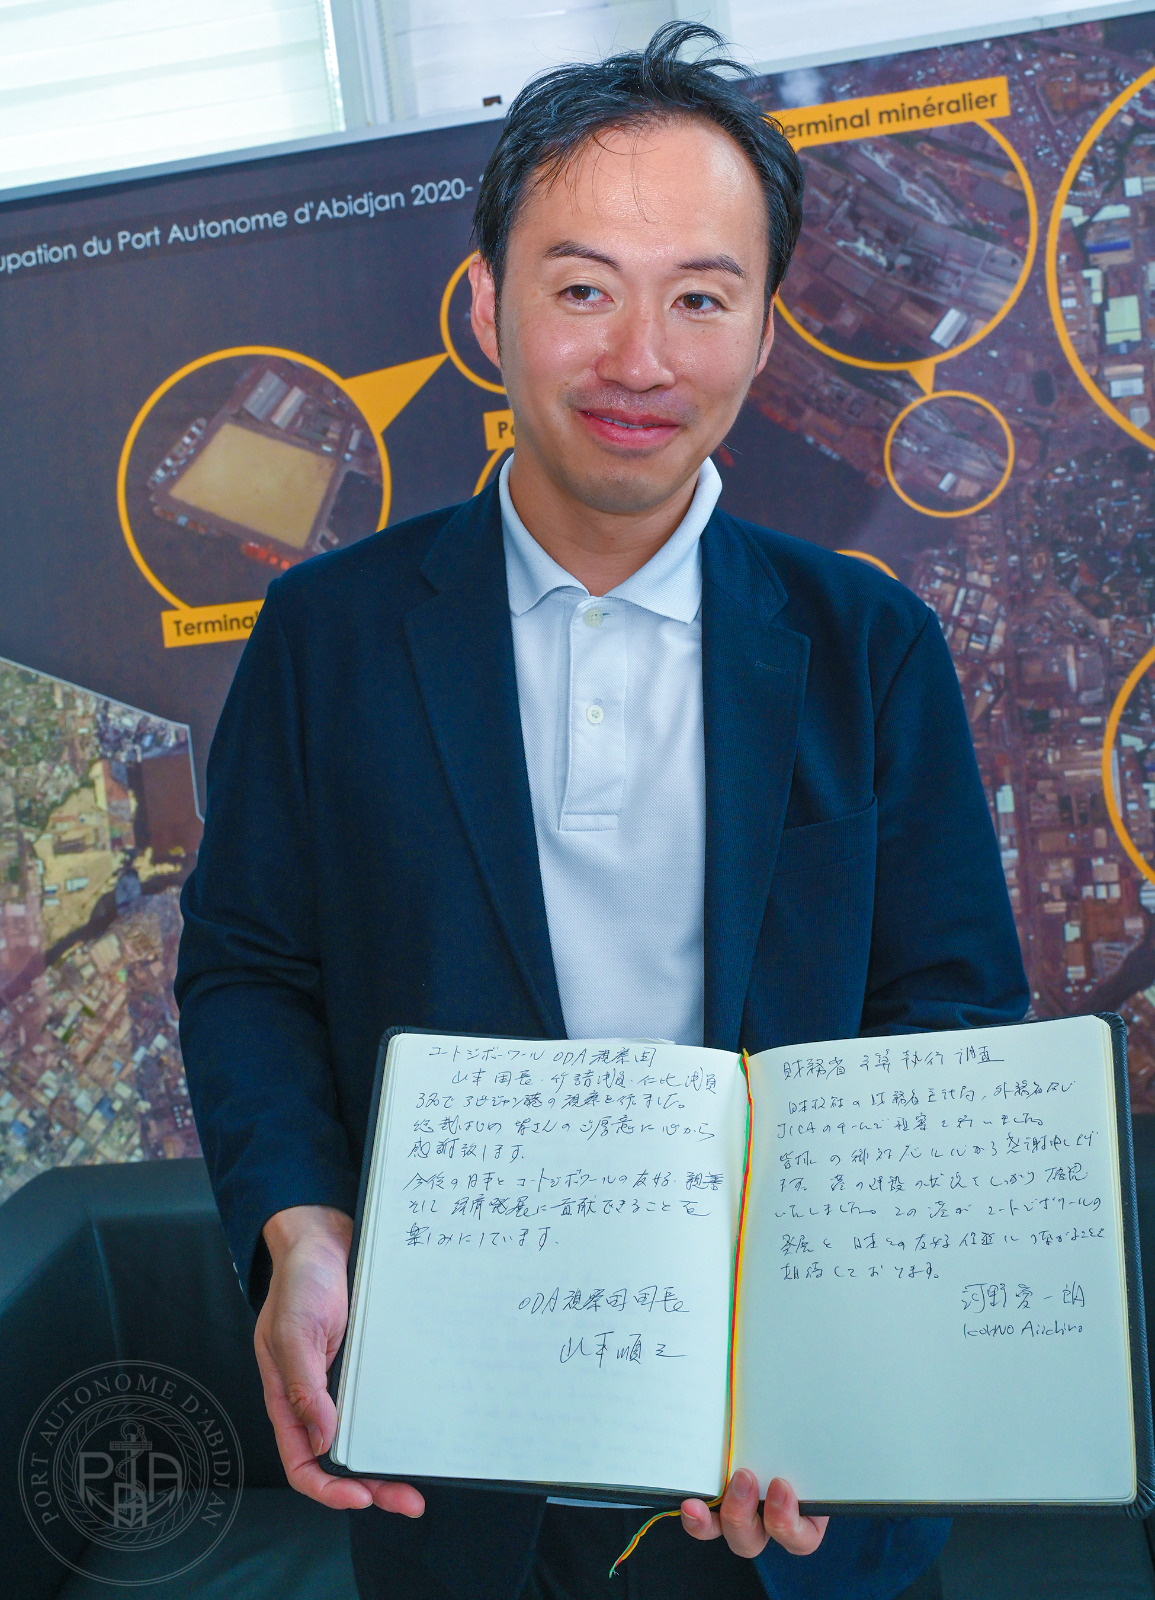 upation du Port Autonome d'Abidjan 2020-
Terminal minéralier
Terminal
コートジボーワール ODA視察団
山本団長・竹詰議員・仁比議員
3名でアビジャン港の視察を行いました。
総裁はじめ皆さんのご厚意に心から
感謝致します。
今後の日本とコートジボワールの友好・親善
そして経済発展に貢献できることを
楽しみにしています。
ODA視察団団長
山本順三
財務省 予算執行調査
日本政府の財務省主計局、外務省及び
JICAのチームで視察を行いました。
皆様の御対応に心から感謝申し上げ
ます。港の建設の状況をしっかり確認
いたしました。この港がコートジボワールの
発展と日本との友好促進につながることを
期待しております。
河野愛一朗
KOHNO Aiichiro
PORT AUTONOME D'ABIDJAN
PAA